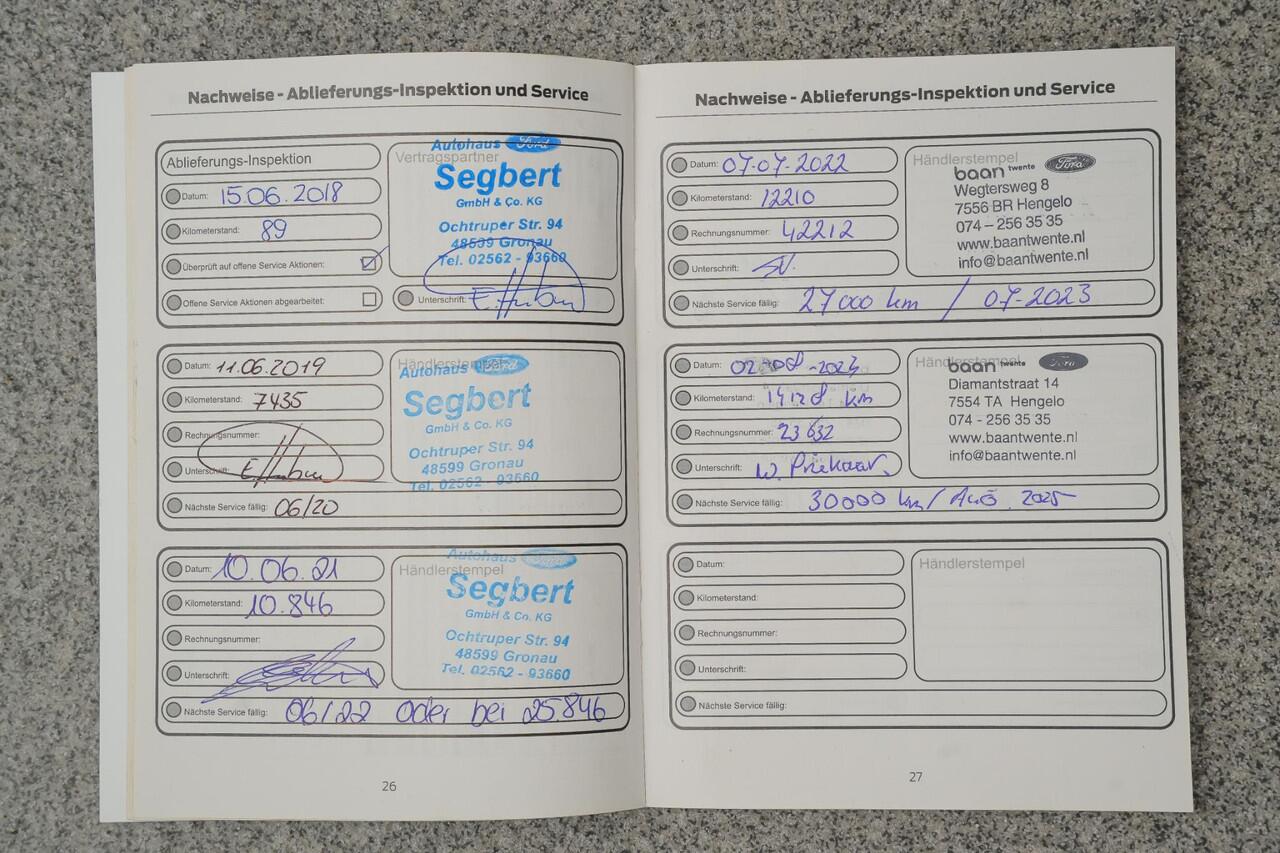 Nachweise - Ablieferungs-Inspektion und Service
Ablieferungs-Inspektion
Datum: 15.06.2018
Kilometerstand: 89
Überprüft auf offene Service Aktionen:
Offene Service Aktionen abgearbeitet:
Vertragspartner
Autohaus Ford
Segbert
GmbH & Co. KG
Ochtruper Str. 94
48599 Gronau
Tel. 02562 - 93660
Unterschrift:
Datum: 11.06.2019
Kilometerstand: 7435
Rechnungsnummer:
Unterschrift:
Nächste Service fällig: 06/20
Händlerstempel
Autohaus Ford
Segbert
GmbH & Co. KG
Ochtruper Str. 94
48599 Gronau
Tel. 02562 - 93660
Datum: 10.06.21
Kilometerstand: 10.846
Rechnungsnummer:
Unterschrift:
Nächste Service fällig: 06/22 oder bei 25846
Händlerstempel
Autohaus Ford
Segbert
GmbH & Co. KG
Ochtruper Str. 94
48599 Gronau
Tel. 02562 - 93660
26
Nachweise - Ablieferungs-Inspektion und Service
Datum: 07-07-2022
Kilometerstand: 12210
Rechnungsnummer: 42212
Unterschrift:
Nächste Service fällig: 27000 km / 07-2023
Händlerstempel
baan twente Ford
Wegtersweg 8
7556 BR Hengelo
074 – 256 35 35
www.baantwente.nl
info@baantwente.nl
Datum:
Kilometerstand: 14128 km
Rechnungsnummer: 23632
Unterschrift: W. Priekaar
Nächste Service fällig: 30000 km / Aug. 2025
Händlerstempel
baan twente Ford
Diamantstraat 14
7554 TA Hengelo
074 - 256 35 35
www.baantwente.nl
info@baantwente.nl
Datum:
Kilometerstand:
Rechnungsnummer:
Unterschrift:
Nächste Service fällig:
Händlerstempel
27